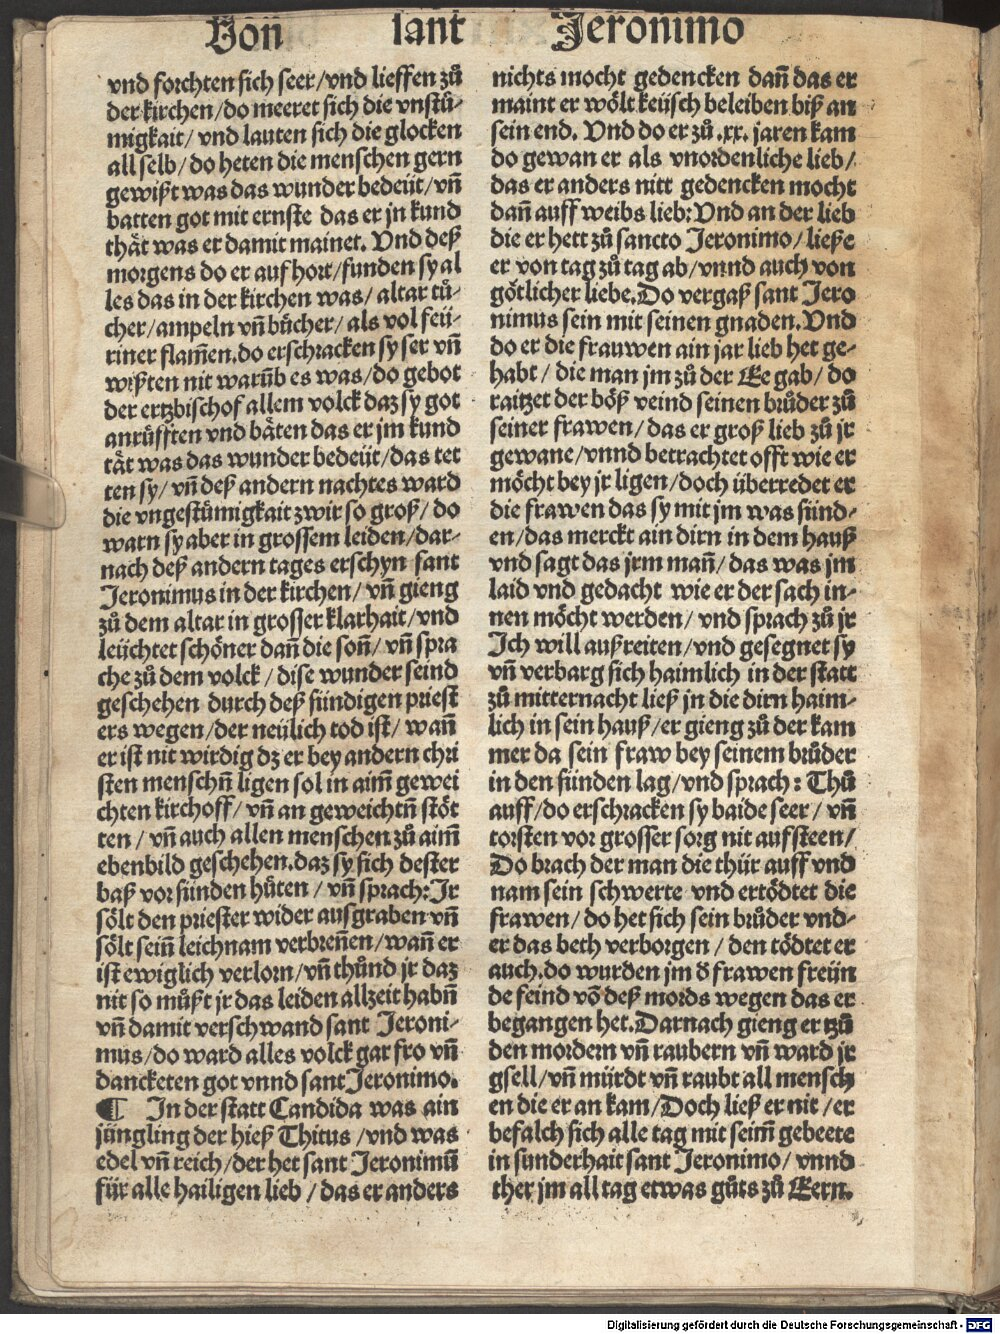 Von sant Jeronimo
vnd forchten sich seer/vnd lieffen zů
der kirchen/do meeret sich die vnstů-
migkait/ vnd lauten sich die glocken
all selb/do heten die menschen gern
gewißt was das wunder bedeüt/vn̄
batten got mit ernste das er jn kund
thät was er damit mainet. Vnd deß
morgens do er auf hort/funden sy al
les das in der kirchen was/ altar tů-
cher/ampeln vn̄ bůcher/ als vol feü-
riner flam̄en.do erschracken sy ser vn̄
wißten nit warūb es was/do gebot
der ertzbischof allem volck daz sy got
anrůfften vnd bäten das er jm kund
tät was das wunder bedeüt/das tet
ten sy/ vn̄ deß andern nachtes ward
die vngestůmigkait zwir so groß/ do
warn sy aber in grossem leiden/dar-
nach deß andern tages erschyn sant
Jeronimus in der kirchen/ vn̄ gieng
zů dem altar in grosser klarhait/vnd
leüchtet schöner dan̄ die son̄/ vn̄ spra
che zů dem volck/ dise wunder seind
geschehen durch deß sündigen priest
ers wegen/der neülich tod ist/ wan̄
er ist nit wirdig dz er bey andern chri
sten menschn̄ ligen sol in aim̄ gewei
chten kirchoff/ vn̄ an geweichtn̄ stöt
ten/ vn̄ auch allen menschen zů aim̄
ebenbild geschehen.daz sy sich dester
baß vor sünden hůten/ vn̄ sprach:Jr
sölt den priester wider ausgraben vn̄
sölt sein̄ leichnam verbren̄en/wan̄ er
ist ewiglich verlorn/vn̄ thůnd jr daz
nit so můßt jr das leiden allzeit habn̄
vn̄ damit verschwand sant Jeroni-
mus/do ward alles volck gar fro vn̄
dancketen got vnnd sant Jeronimo.
¶ In der statt Candida was ain
jüngling der hieß Thitus/vnd was
edel vn̄ reich/der het sant Jeronimū
für alle hailigen lieb/das er anders
nichts mocht gedencken dan̄ das er
maint er wölt keüsch beleiben biß an
sein end. Vnd do er zů .xx. jaren kam
do gewan er als vnordenliche lieb/
das er anders nitt gedencken mocht
dan̄ auff weibs lieb:Vnd an der lieb
die er hett zů sancto Jeronimo/ließe
er von tag zů tag ab/vnnd auch von
götlicher liebe.Do vergaß sant Jero
nimus sein mit seinen gnaden.Vnd
do er die frauwen ain jar lieb het ge-
habt/ die man jm zů der Ee gab/ do
raitzet der böß veind seinen brůder zů
seiner frawen/das er groß lieb zů jr
gewane/vnnd betrachtet offt wie er
möcht bey jr ligen/doch überredet er
die frawen das sy mit jm was sünd-
en/das merckt ain dirn in dem hauß
vnd sagt das jrm man̄/das was jm
laid vnd gedacht wie er der sach in-
nen möcht werden/ vnd sprach zů jr
Ich will außreiten/vnd gesegnet sy
vn̄ verbarg sich haimlich in der statt
zů mitternacht ließ jn die dirn haim-
lich in sein hauß/er gieng zů der kam
mer da sein fraw bey seinem brůder
in den sünden lag/vnd sprach: Thů
auff/do erschracken sy baide seer/ vn̄
torsten vor grosser sorg nit aufsteen/
Do brach der man die thür auff vnd
nam sein schwerte vnd ertödtet die
frawen/do het sich sein brůder vnd-
er das beth verborgen/ den tödtet er
auch.do wurden jm d̄ frawen freün
de feind vō deß mords wegen das er
begangen het.Darnach gieng er tzů
den mordern vn̄ raubern vn̄ ward jr
gsell/vn̄ mürdt vn̄ raubt all mensch
en die er an kam/Doch ließ er nit/er
befalch sich alle tag mit seim̄ gebeete
in sunderhait sant Jeronimo/ vnnd
ther jm all tag etwas gůts zů Eern.
Digitalisierung gefördert durch die Deutsche Forschungsgemeinschaft - DFG